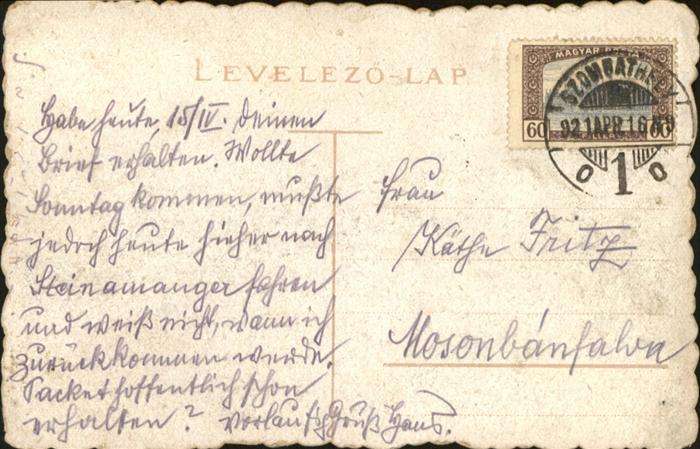 LEVELEZŐ-LAP
MAGYAR POSTA
60 60
SZOMBATHELY
921 APR. 16
1
Habe heute, 15/IV. deinen
Brief erhalten. Wollte
Sonntag kommen, mußte
jedoch heute hieher nach
Steinamanger fahren
und weiß nicht, wann ich
zurückkommen werde.
Packet hoffentlich schon
erhalten? Vorläufig Gruß Hans.
Frau
Käthe Fritz
Mosonbánfalva